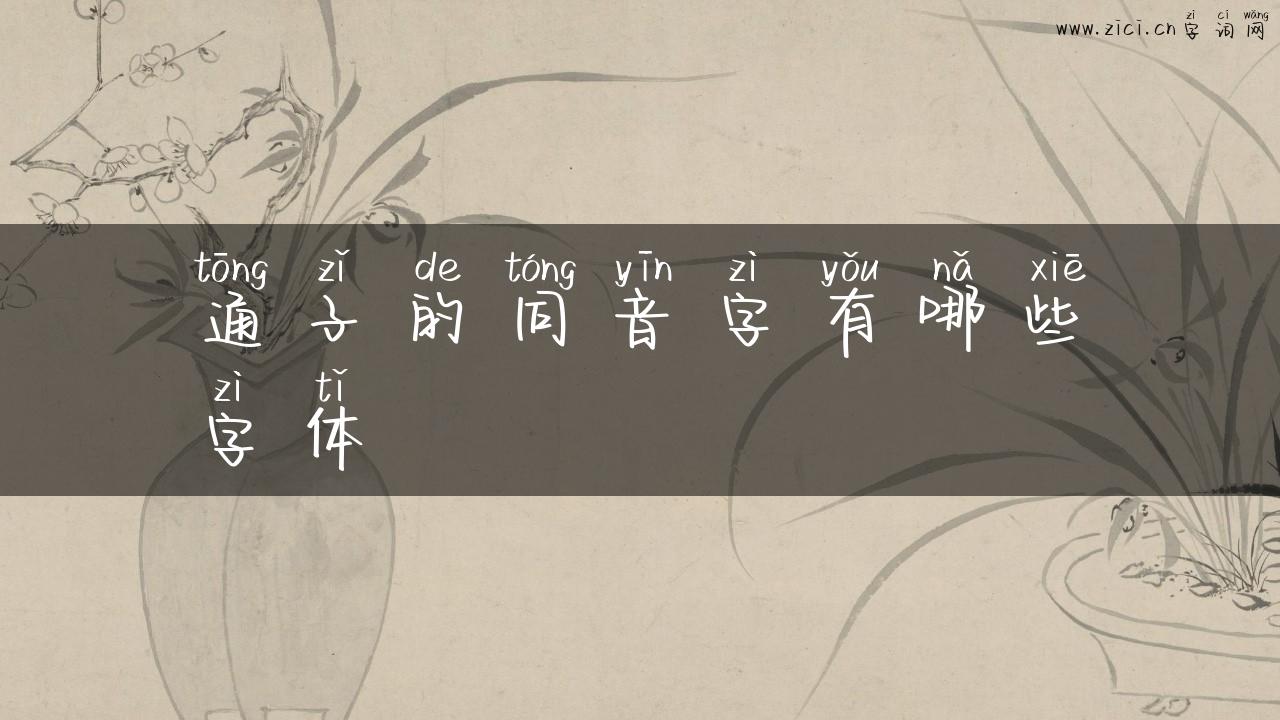 zì cí wǎng
www.zici.cn 字词网
tōng zǐ de tóng yīn zì yǒu nǎ xiē
通子的同音字有哪些
zì tǐ
字体